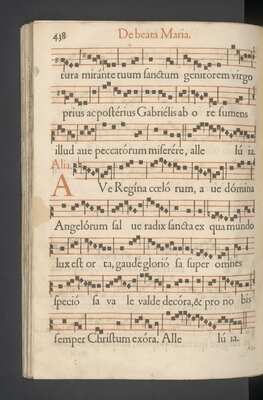 438
De beata Maria.
tura miránte tuum sanctum genitorem virgo
prius ac postérius Gabriélis ab o re sumens
illud aue peccatórum miserére, alle lú ia.
Alia.
A Ve Regína cœló rum, a ue dómina
Angelórum sal ue radix sancta ex qua mundo
lux est or ta, gaude glorió sa super omnes
speció sa va le valde decóra, & pro no bis
semper Christum exóra. Alle lú ia.